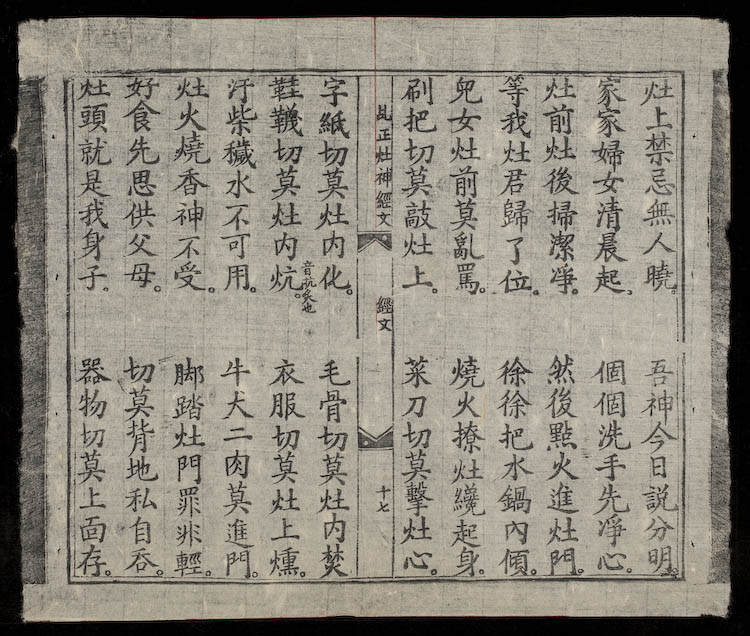 灶上禁忌無人曉。吾神今日説分明。
家家婦女清晨起。個個洗手先凈心。
灶前灶後掃潔凈。然後㸃火進灶門。
等我灶君歸了位。徐徐把水鍋內傾。
兒女灶前莫亂罵。燒火撩灶纔起身。
刷把切莫敲灶上。菜刀切莫擊灶心。
灶神經文
經文
十七
字紙切莫灶内化。毛骨切莫灶内焚
鞋韈切莫灶内炕。音抗炙也衣服切莫灶上燻。
汙柴穢水不可用。牛犬二肉莫進門。
灶火燒香神不受。脚踏灶門罪非輕。
好食先思供父母。切莫背地私自吞。
灶頭就是我身子。器物切莫上面存。